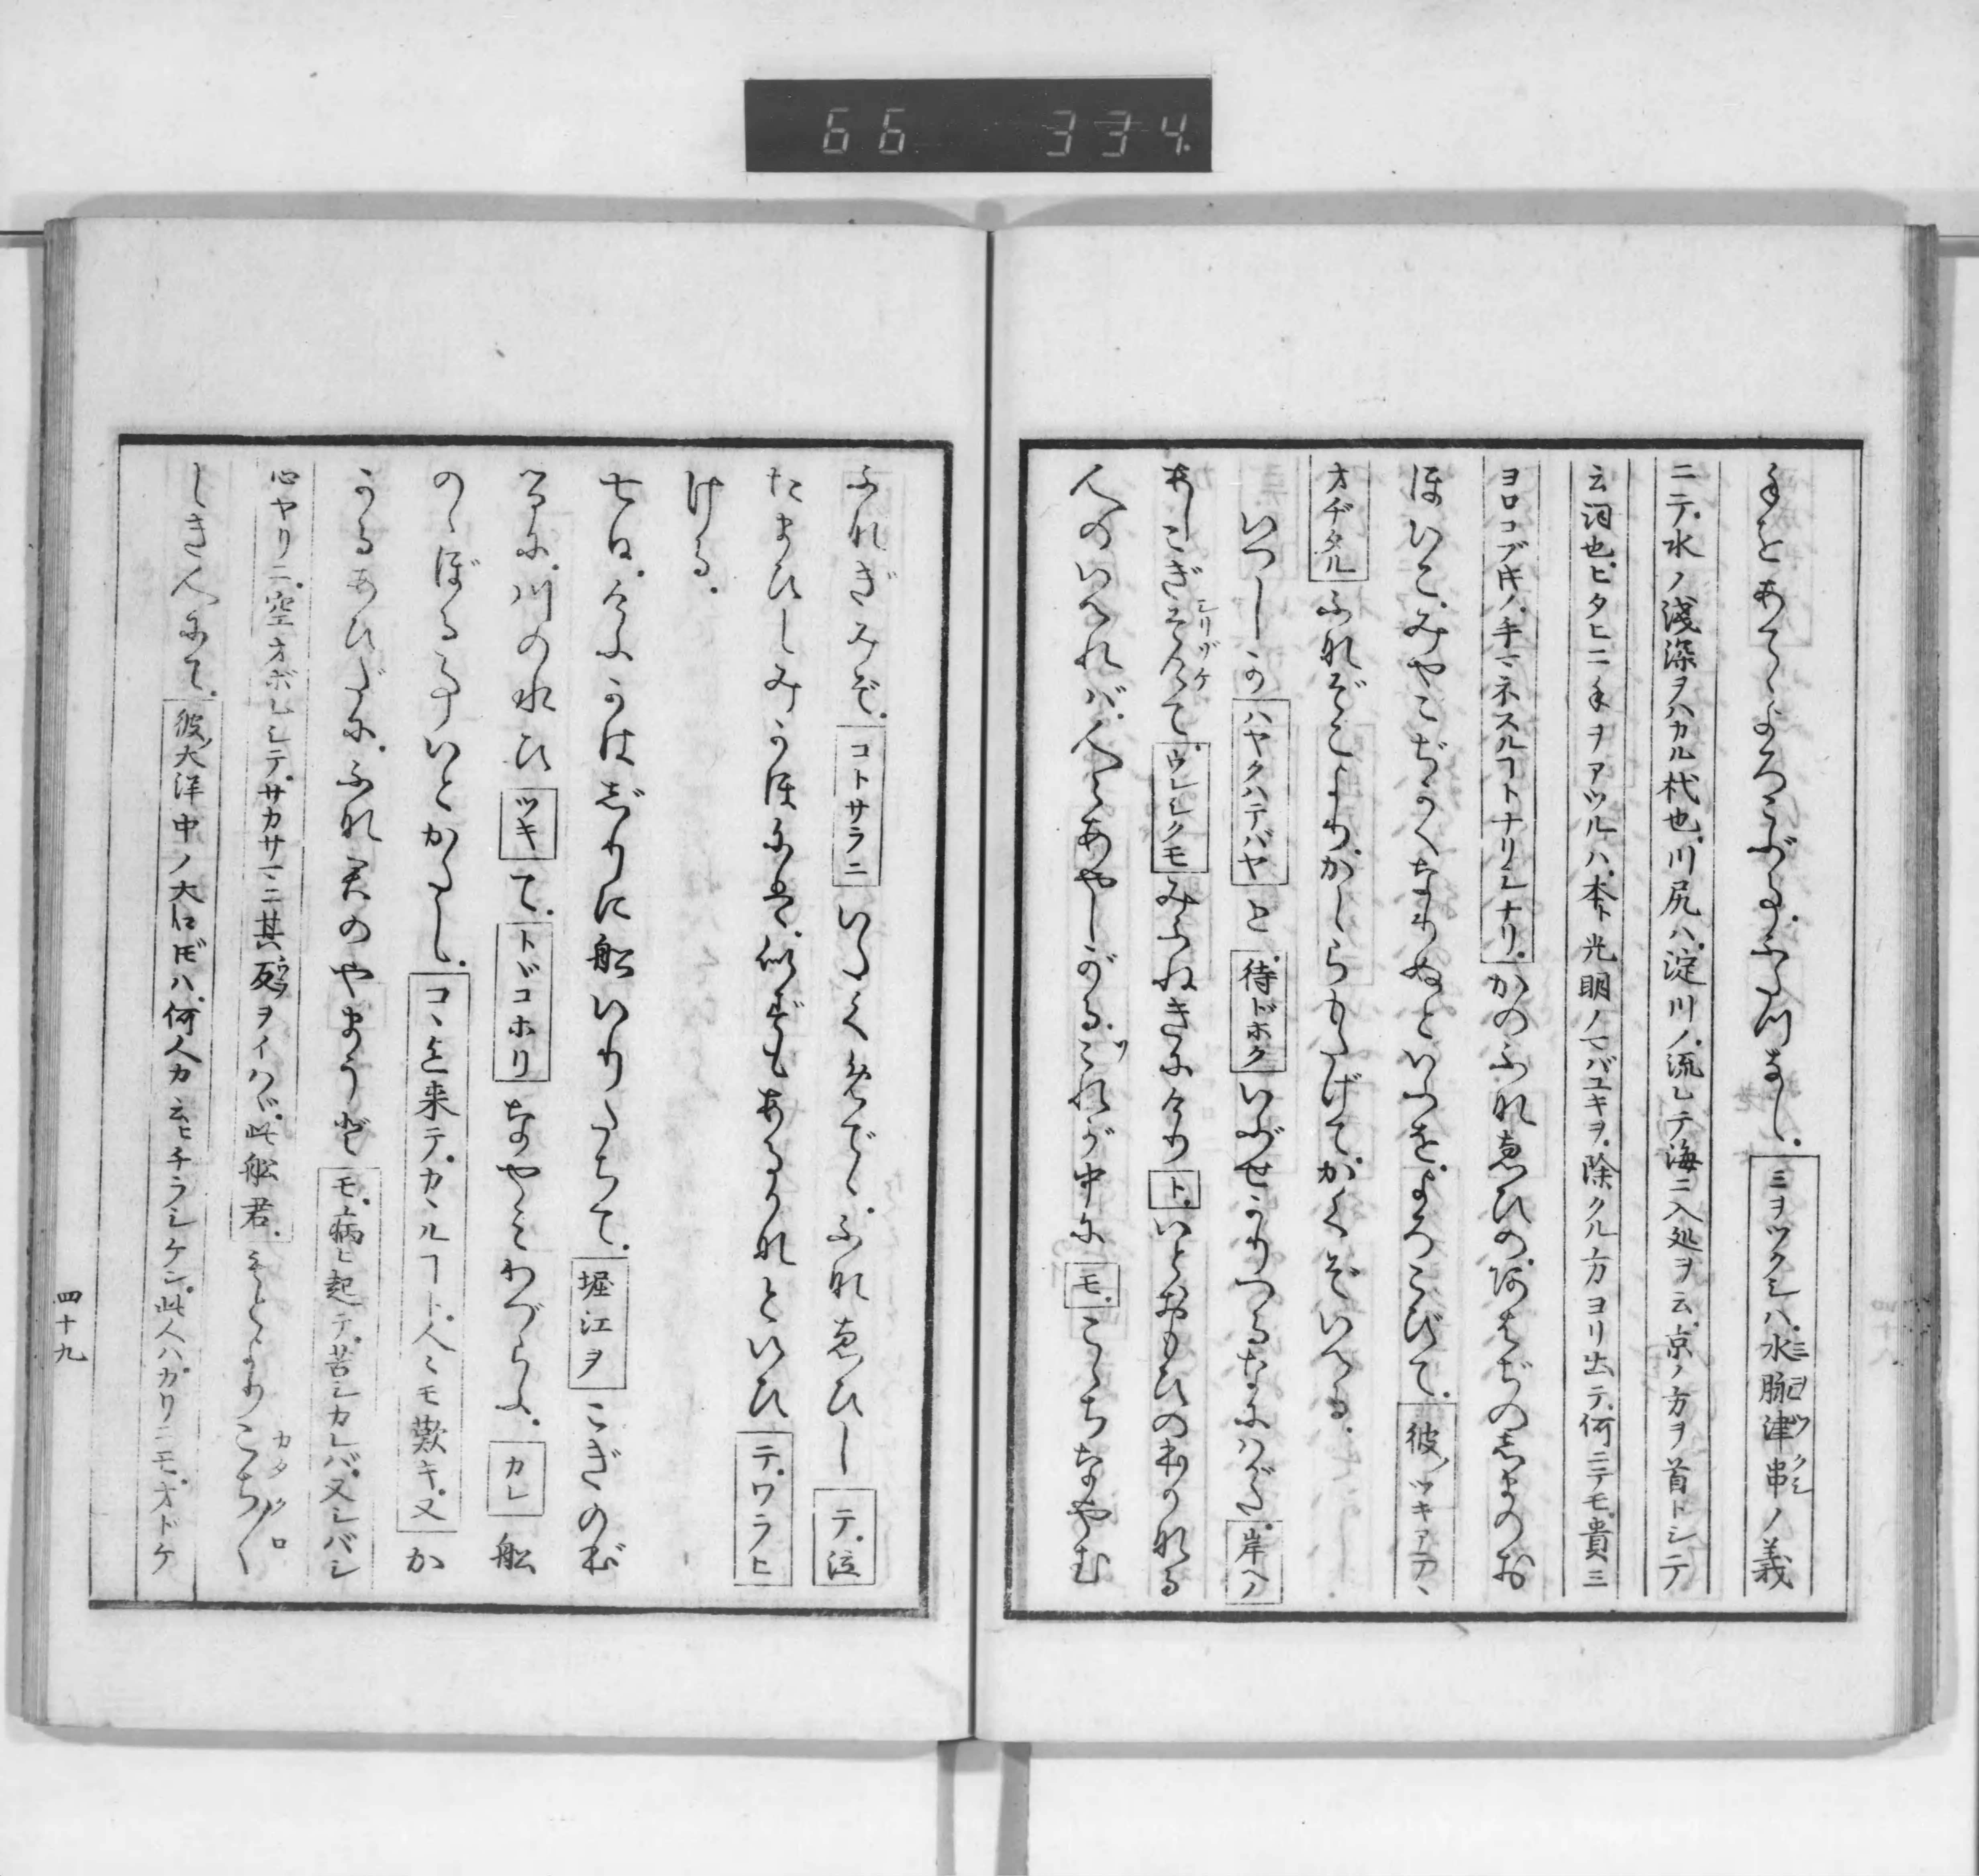 66 334.
手をあてゝよろこぶ事。ふたつなし。ミヲツクシハ。水脈津串ノ義
ニテ。水ノ浅深ヲハカル杙也。川尻ハ。淀川ノ。流レテ海ニ入処ヲ云。京ノ方ヲ首トシテ
云詞也。ヒタヒニ手ヲアツルハ。本ト光明ノマバユキヲ。除クル方ヨリ出テ。何ニテモ。貴ミ
ヨロコブ時ノ。手マネスルヿトナリシナリ。かのふれ恵ひの。あはぢの志まのお
ほいこ。みやこぢかくなりぬといふを。よろこびて。彼ノツキアテヽ
オヂタル ふねぞこより。かしらもたげて。かくぞいへる。
いつしか ハヤクハテバヤ と 待ドホク いぶせかりつるなにハがた。岸ヘノ
あしこぎそけて。ウレシクモ みふねきにけり ト。いとおもひの外なる
シリゾケ
人のいへれバ。人々あやしがる。これが中に モ。こゝちなやむ
ふなぎみぞ。コトサラニ いたくめでゝ。ふね恵ひし テ。泣
たまひしみかほには。似ずもあるかなといひ テ。ワラヒ
ける。
七日。けふかはじりに船いりたちて。堀江ヲ こぎのぼ
るに。川の水ひ ツキ て。トドコホリ なやミわづらふ。カレ 船
のゝぼる事いとかたし。コヽ迄来テ。カヽルヿト。人ミモ歎キ。又 か
かるあひだに。ふな君のやまうど モ。病ヒ起テ。苦シカレバ。又シバシ
心ヤリニ。空オボレシテ。サカサマニ其 ヲイハヾ。此船君。もとよりこちく
しき人にて。彼ノ大洋中ノ大口ドモハ。何人カ云ヒチラシケン。此人ハカリニモ。オドケ
四十九